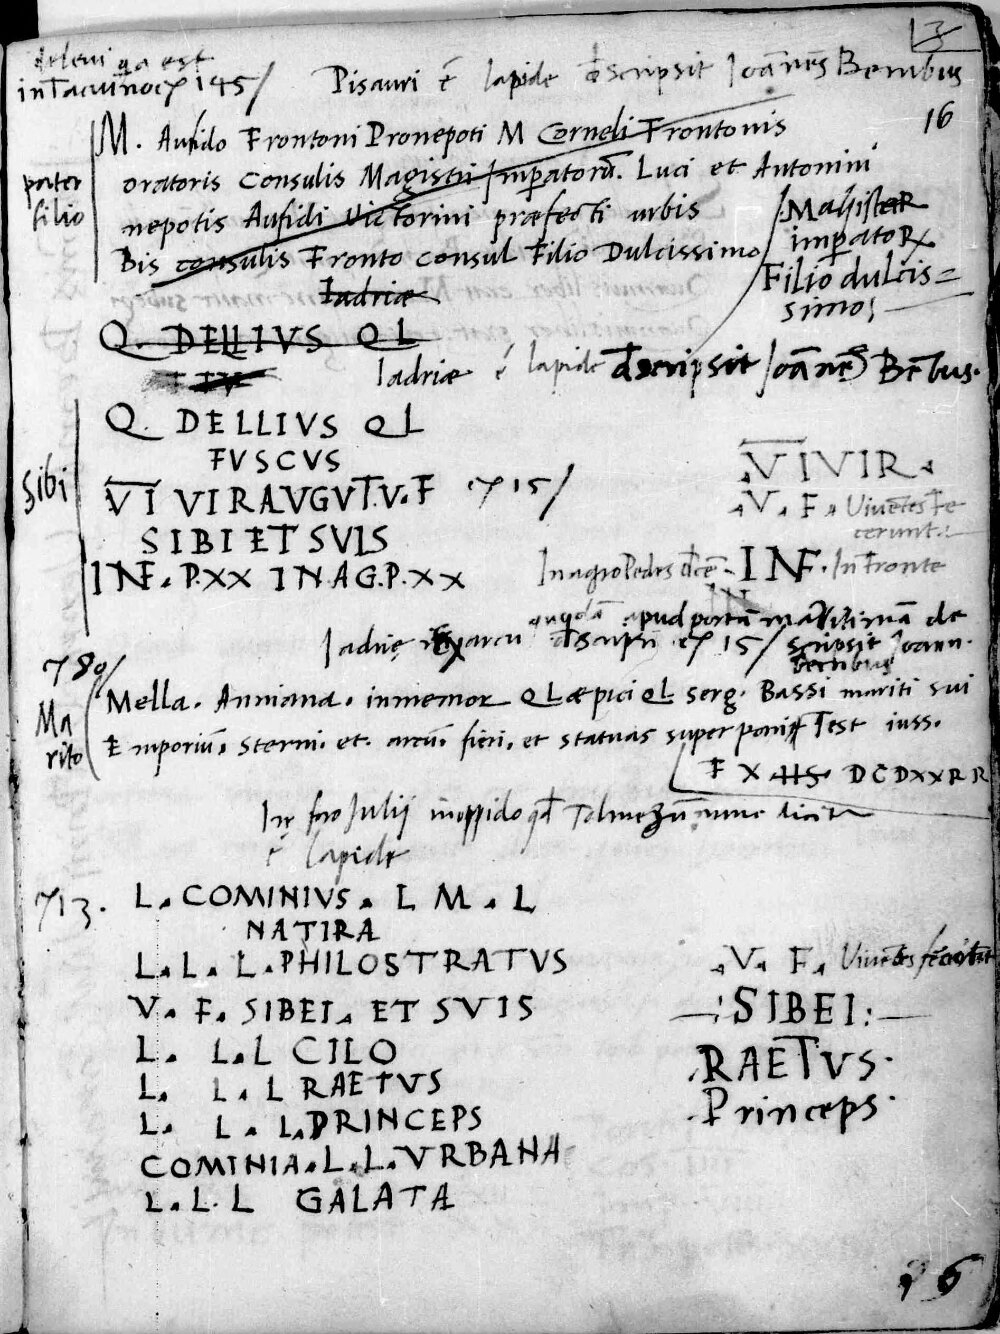 13
deleui q̄a est
Pisauri ē lapide d̄scripsit Joānes Bembus
16
M. Aufido Frontoni Pronepoti M Corneli Frontonis
oratoris Consulis Magistri Imperatorū. Luci et Antonini
nepotis Aufidi Victorini praefecti urbis
Bis consulis Fronto consul Filio Dulcissimo
pater
filio
Magister
imperatoR
Filio dulcis=
simo
Iadriæ
Q. DELLIVS QL
Iadriæ ē lapide d̄scripsit Joānes Bēbus.
Q. DELLIVS QL
FVSCVS
VI VIRAVGVT.V.F 15/
SIBI ET SVIS
INF. P.XX IN.AG.P.XX
Sibi
VIVIR
V. F. Viuētes Fe
cerunt.
IN. In agro Pedes
INF. In Fronte
apud portā maritimā de
scripsit Joann.
Bembus
Iadrię arcu 15/
780/
Mella. Anniana. inmemor QLæpici QL serg. Bassi mariti sui
Emporiū. sterni. et. arcū. fieri. et statuas superponi Test iuss.
Ma
rito
F X HS DCDXXRR
In foro Julij in oppido nunc dicit
ē lapide
713.
L. COMINIVS. L M. L
NATIRA
L. L. L. PHILOSTRATVS
V. F. SIBEI. ET SVIS
L. L. L CILO
L. L. L RAETVS
L. L. L. PRINCEPS
COMINIA. L. L. VRBANA
L. L. L GALATA
V. F. Viuētes
SIBEI:
RAETVS
Princeps